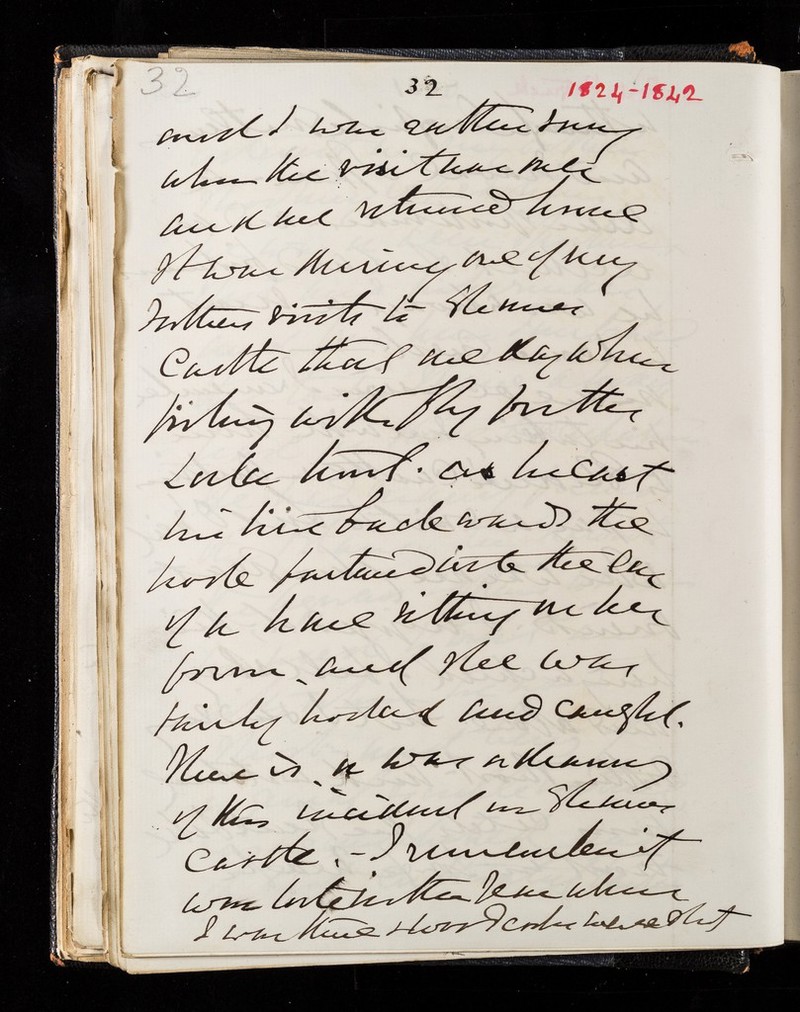 32
32
1824-1842
and I was rather sorry
when the visit was over
and we returned home
It was during one of my
Fathers visits to Skenes
Castle that one day when
fishing with fly for the
Loch trout. as he cast
his line backwards the
hook fastened into the ear
of a hare sitting on her
form. and she was
fairly hooked and caught.
There is, or was a drawing
of this incident in
Castle. - I remember it
was late in the year when
I was there & woodcocks were shot